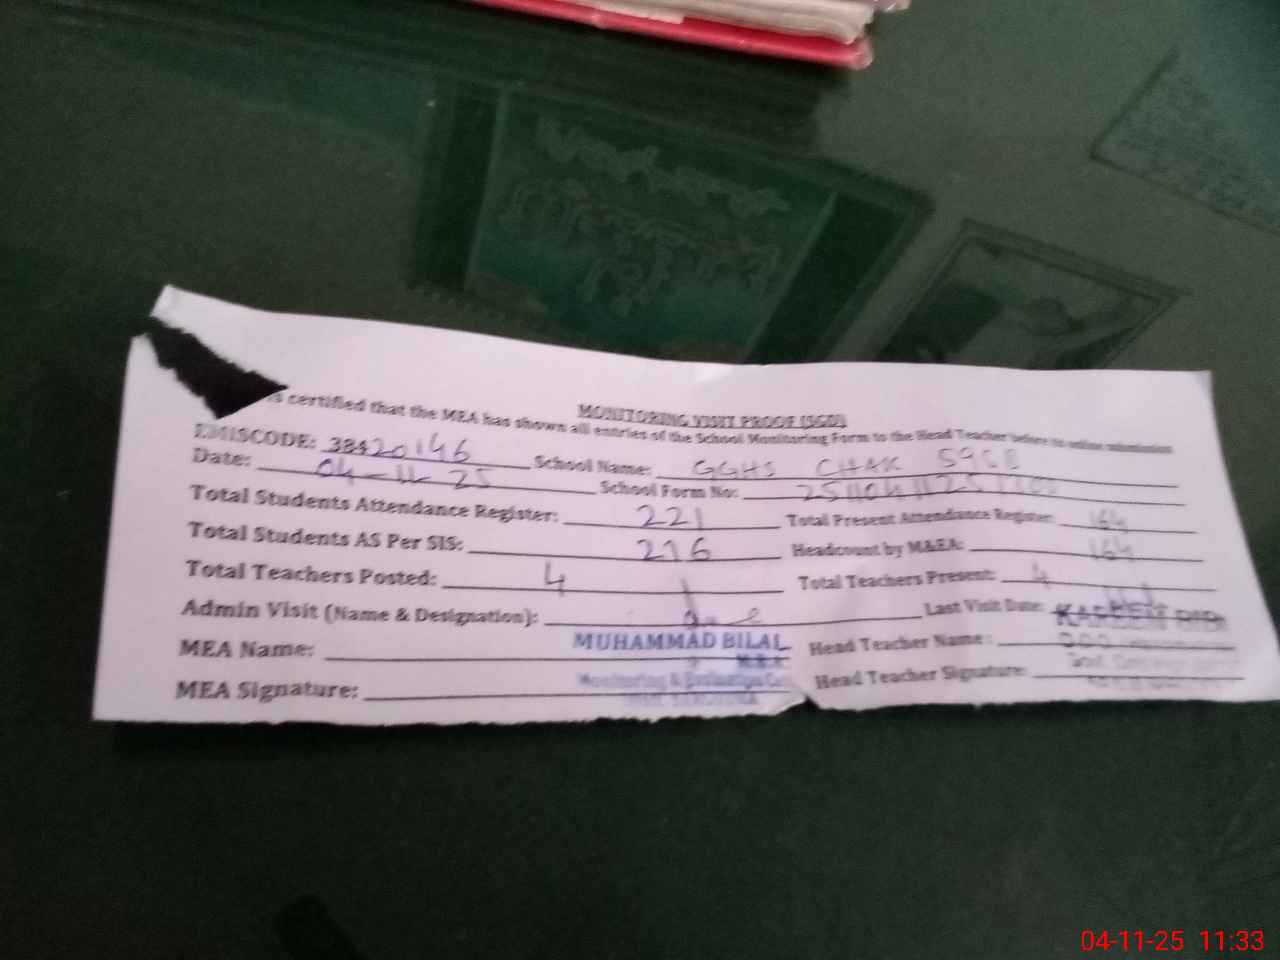 MONITORING VISIT PROOF (SGD)
is certified that the MEA has shown all entries of the School Monitoring Form to the Head Teacher before its online submission
EMISCODE: 38420146 School Name: GGHS CHAK 59SB
Date: 04-11-25 School Form No:
Total Students Attendance Register: 221 Total Present Attendance Register: 164
Total Students AS Per SIS: 216 Headcount by M&EA: 164
Total Teachers Posted: 4 Total Teachers Present: 4
Admin Visit (Name & Designation): Last Visit Date:
MEA Name: MUHAMMAD BILAL Head Teacher Name:
M.E.A
MEA Signature: Monitoring & Evaluation Head Teacher Signature:
04-11-25 11:33